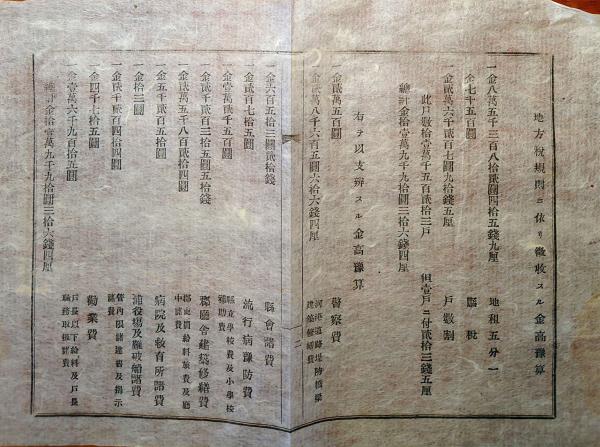 地方稅規則ニ依リ徵收スル金高豫算
一金八萬五千三百八拾貳圓四拾五錢九厘 地租五分一
一金七千五百圓 縣稅
一金貳萬六千貳百七圓九拾錢五厘 戶數割
此戶數拾壹萬千五百貳拾三戶 但壹戶ニ付貳拾三錢五厘
總計金拾壹萬九千九拾圓三拾六錢四厘
右ヲ以支辨スル金高豫算
一金貳萬五百圓 警察費
一金貳萬八千六百五圓六拾六錢四厘 河港道路堤防橋梁建築修繕費
一金六百五拾三圓貳拾錢 縣會諸費
一金貳百七拾五圓 流行病豫防費
一金壹萬千五百圓 縣立學校費及小學校補助費
一金貳千貳百三拾五圓五拾錢 郡廳舍建築修繕費
一金貳萬五千八百貳拾四圓 郡吏員給料旅費及廳中諸費
一金五千五百五拾圓 病院及救育所諸費
一金拾三圓 浦役場及難破船諸費
一金貳千貳百四拾四圓 管內限諸達書及揭示諸費
一金四千七拾五圓 勸業費
一金壹萬六千九百拾五圓 戶長以下給料及戶長職務取扱諸費
總計金拾壹萬九千九拾圓三拾六錢四厘
二